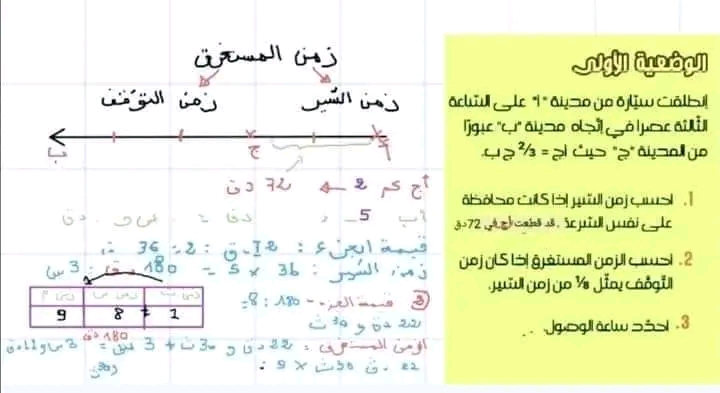 الوضعية الأولى
إنطلقت سيّارة من مدينة "أ" على السّاعة
الثّالثة عصرا في إتّجاه مدينة "ب" عبورًا
من المدينة "ج" حيث أج = 2/3 ج ب.
1. احسب زمن السّير إذا كانت محافظة
على نفس السّرعة . قد قطعت أج في 72دق
2. احسب الزمن المستغرق إذا كان زمن
التّوقّف يمثّل 1/8 من زمن السّير.
3. احدّد ساعة الوصول.
زمن المستغرق
زمن السّير زمن التوقّف
أ ج ب
أج كم 2 72 دق
أب 5 دق =
قيمة الجزء : 72 دق : 2 = 36
زمن السّير : 36 × 5 = 180 دق : 3 س
9 8 + 1
180 : 8 =
22 دق و 30 ث
الزمن المستغرق : 22 دق و 30 ث + 3 س = 3 س و 22 دق
180 دق
و 30 ث
22 دق 30 ث × 9 :